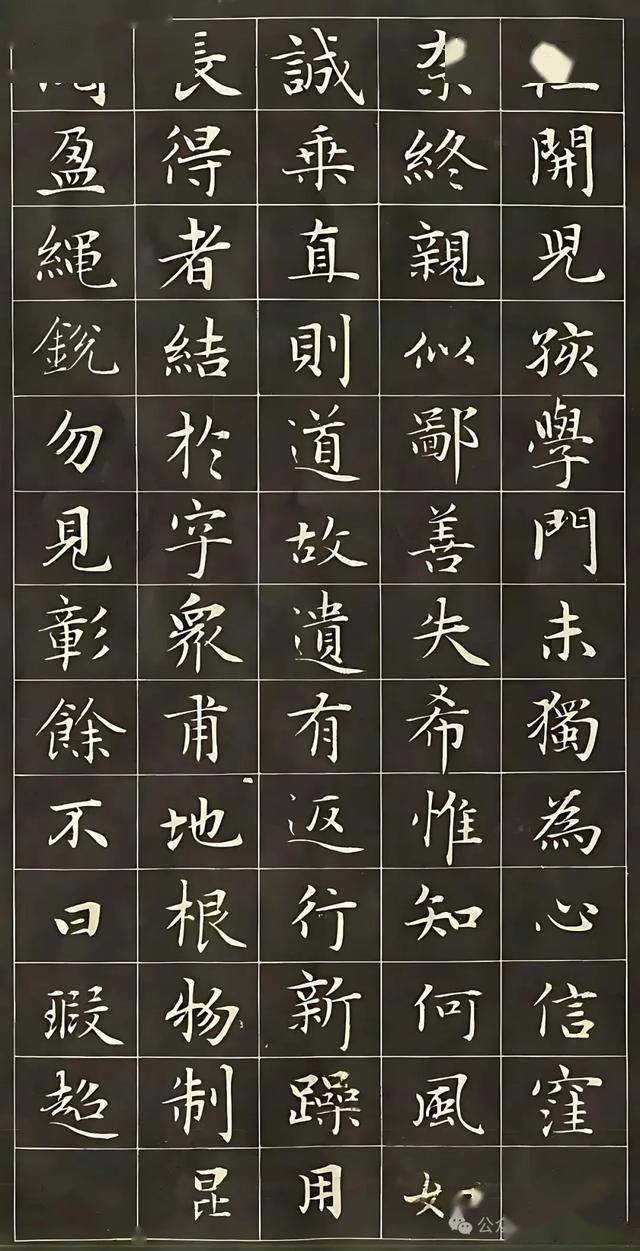 開兒孩學門未獨為心信窪
終親似鄙善失希惟知何風如
誠乗直則道故遺有返行新躁用
長得者結於罕眾甫地根物制昆
盈繩銳勿見彰餘不曰瑕超
公众